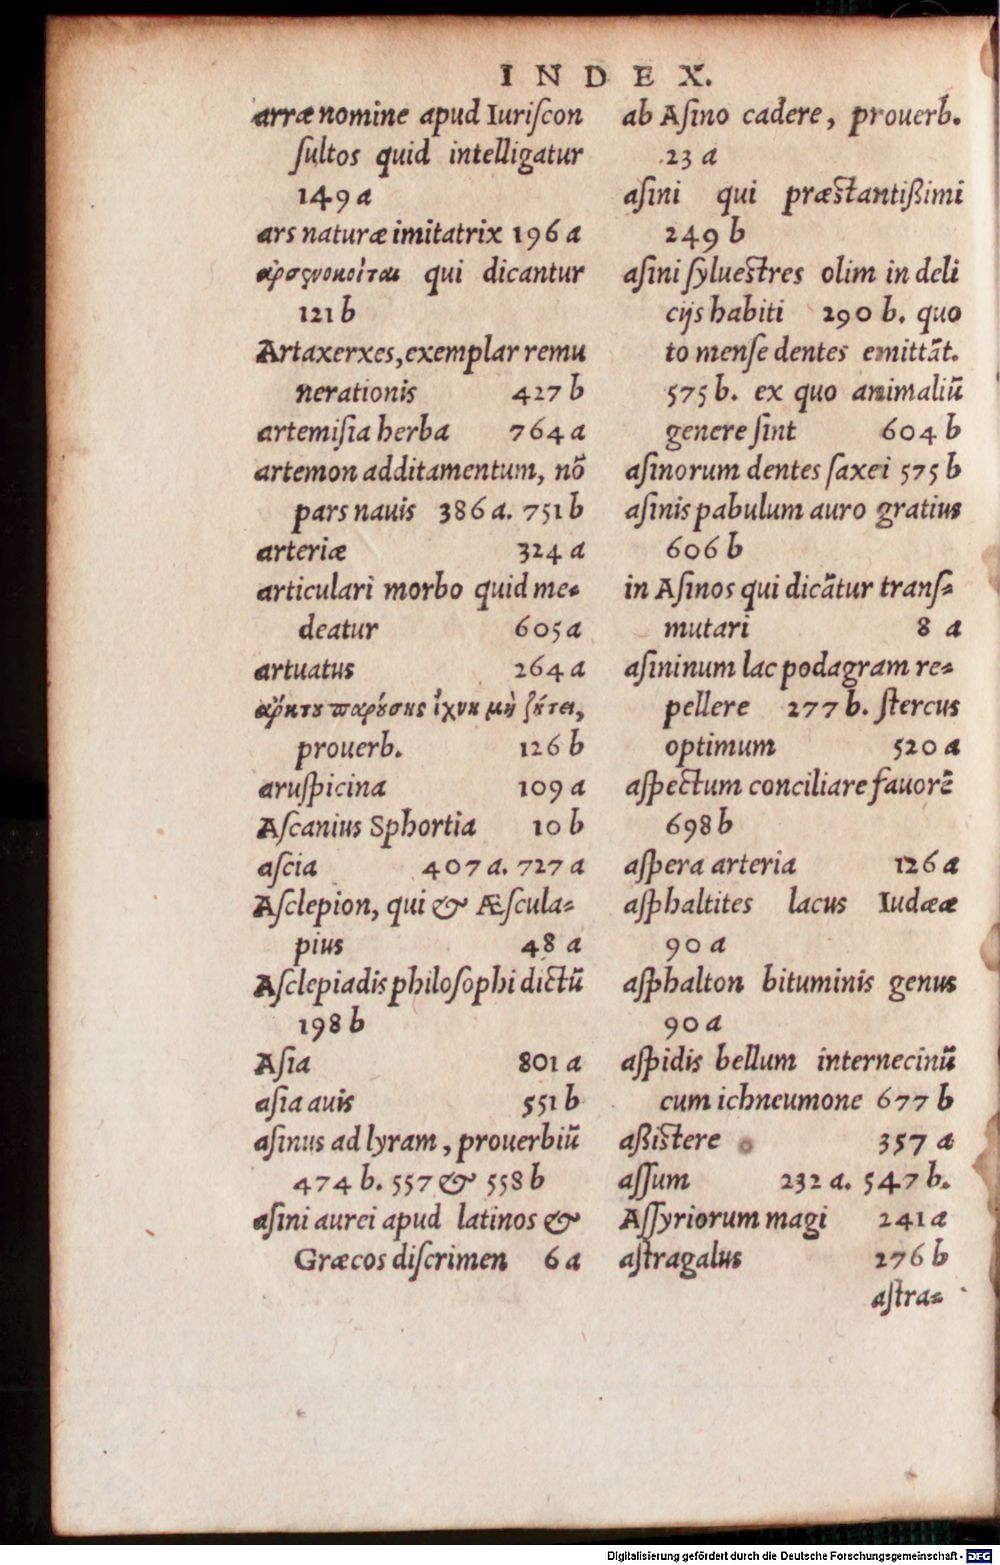 INDEX.
arræ nomine apud Iuriſcon
ſultos quid intelligatur
149 a
ars naturæ imitatrix 196 a
ἀρσενοκοῖται qui dicantur
121 b
Artaxerxes, exemplar remu
nerationis 427 b
artemiſia herba 764 a
artemon additamentum, nõ
pars nauis 386 a. 751 b
arteriæ 324 a
articulari morbo quid me-
deatur 605 a
artuatus 264 a
ἄρκτου παρούσης ἴχνη μὴ ζήτει,
prouerb. 126 b
aruſpicina 109 a
Aſcanius Sphortia 10 b
aſcia 407 a. 727 a
Aſclepion, qui & Æſcula-
pius 48 a
Aſclepiadis philoſophi dictũ
198 b
Aſia 801 a
aſia auis 551 b
aſinus ad lyram, prouerbiũ
474 b. 557 & 558 b
aſini aurei apud latinos &
Græcos diſcrimen 6 a
ab Aſino cadere, prouerb.
23 a
aſini qui præſtantißimi
249 b
aſini ſylueſtres olim in deli
cijs habiti 290 b. quo
to menſe dentes emittãt.
575 b. ex quo animaliũ
genere ſint 604 b
aſinorum dentes ſaxei 575 b
aſinis pabulum auro gratius
606 b
in Aſinos qui dicãtur tranſ-
mutari 8 a
aſininum lac podagram re-
pellere 277 b. ſtercus
optimum 520 a
aſpectum conciliare fauorẽ
698 b
aſpera arteria 126 a
aſphaltites lacus Iudææ
90 a
aſphalton bituminis genus
90 a
aſpidis bellum internecinũ
cum ichneumone 677 b
aßiſtere 357 a
aſſum 232 a. 547 b.
Aſſyriorum magi 241 a
aſtragalus 276 b
aſtra-
Digitalisierung gefördert durch die Deutsche Forschungsgemeinschaft - DFG